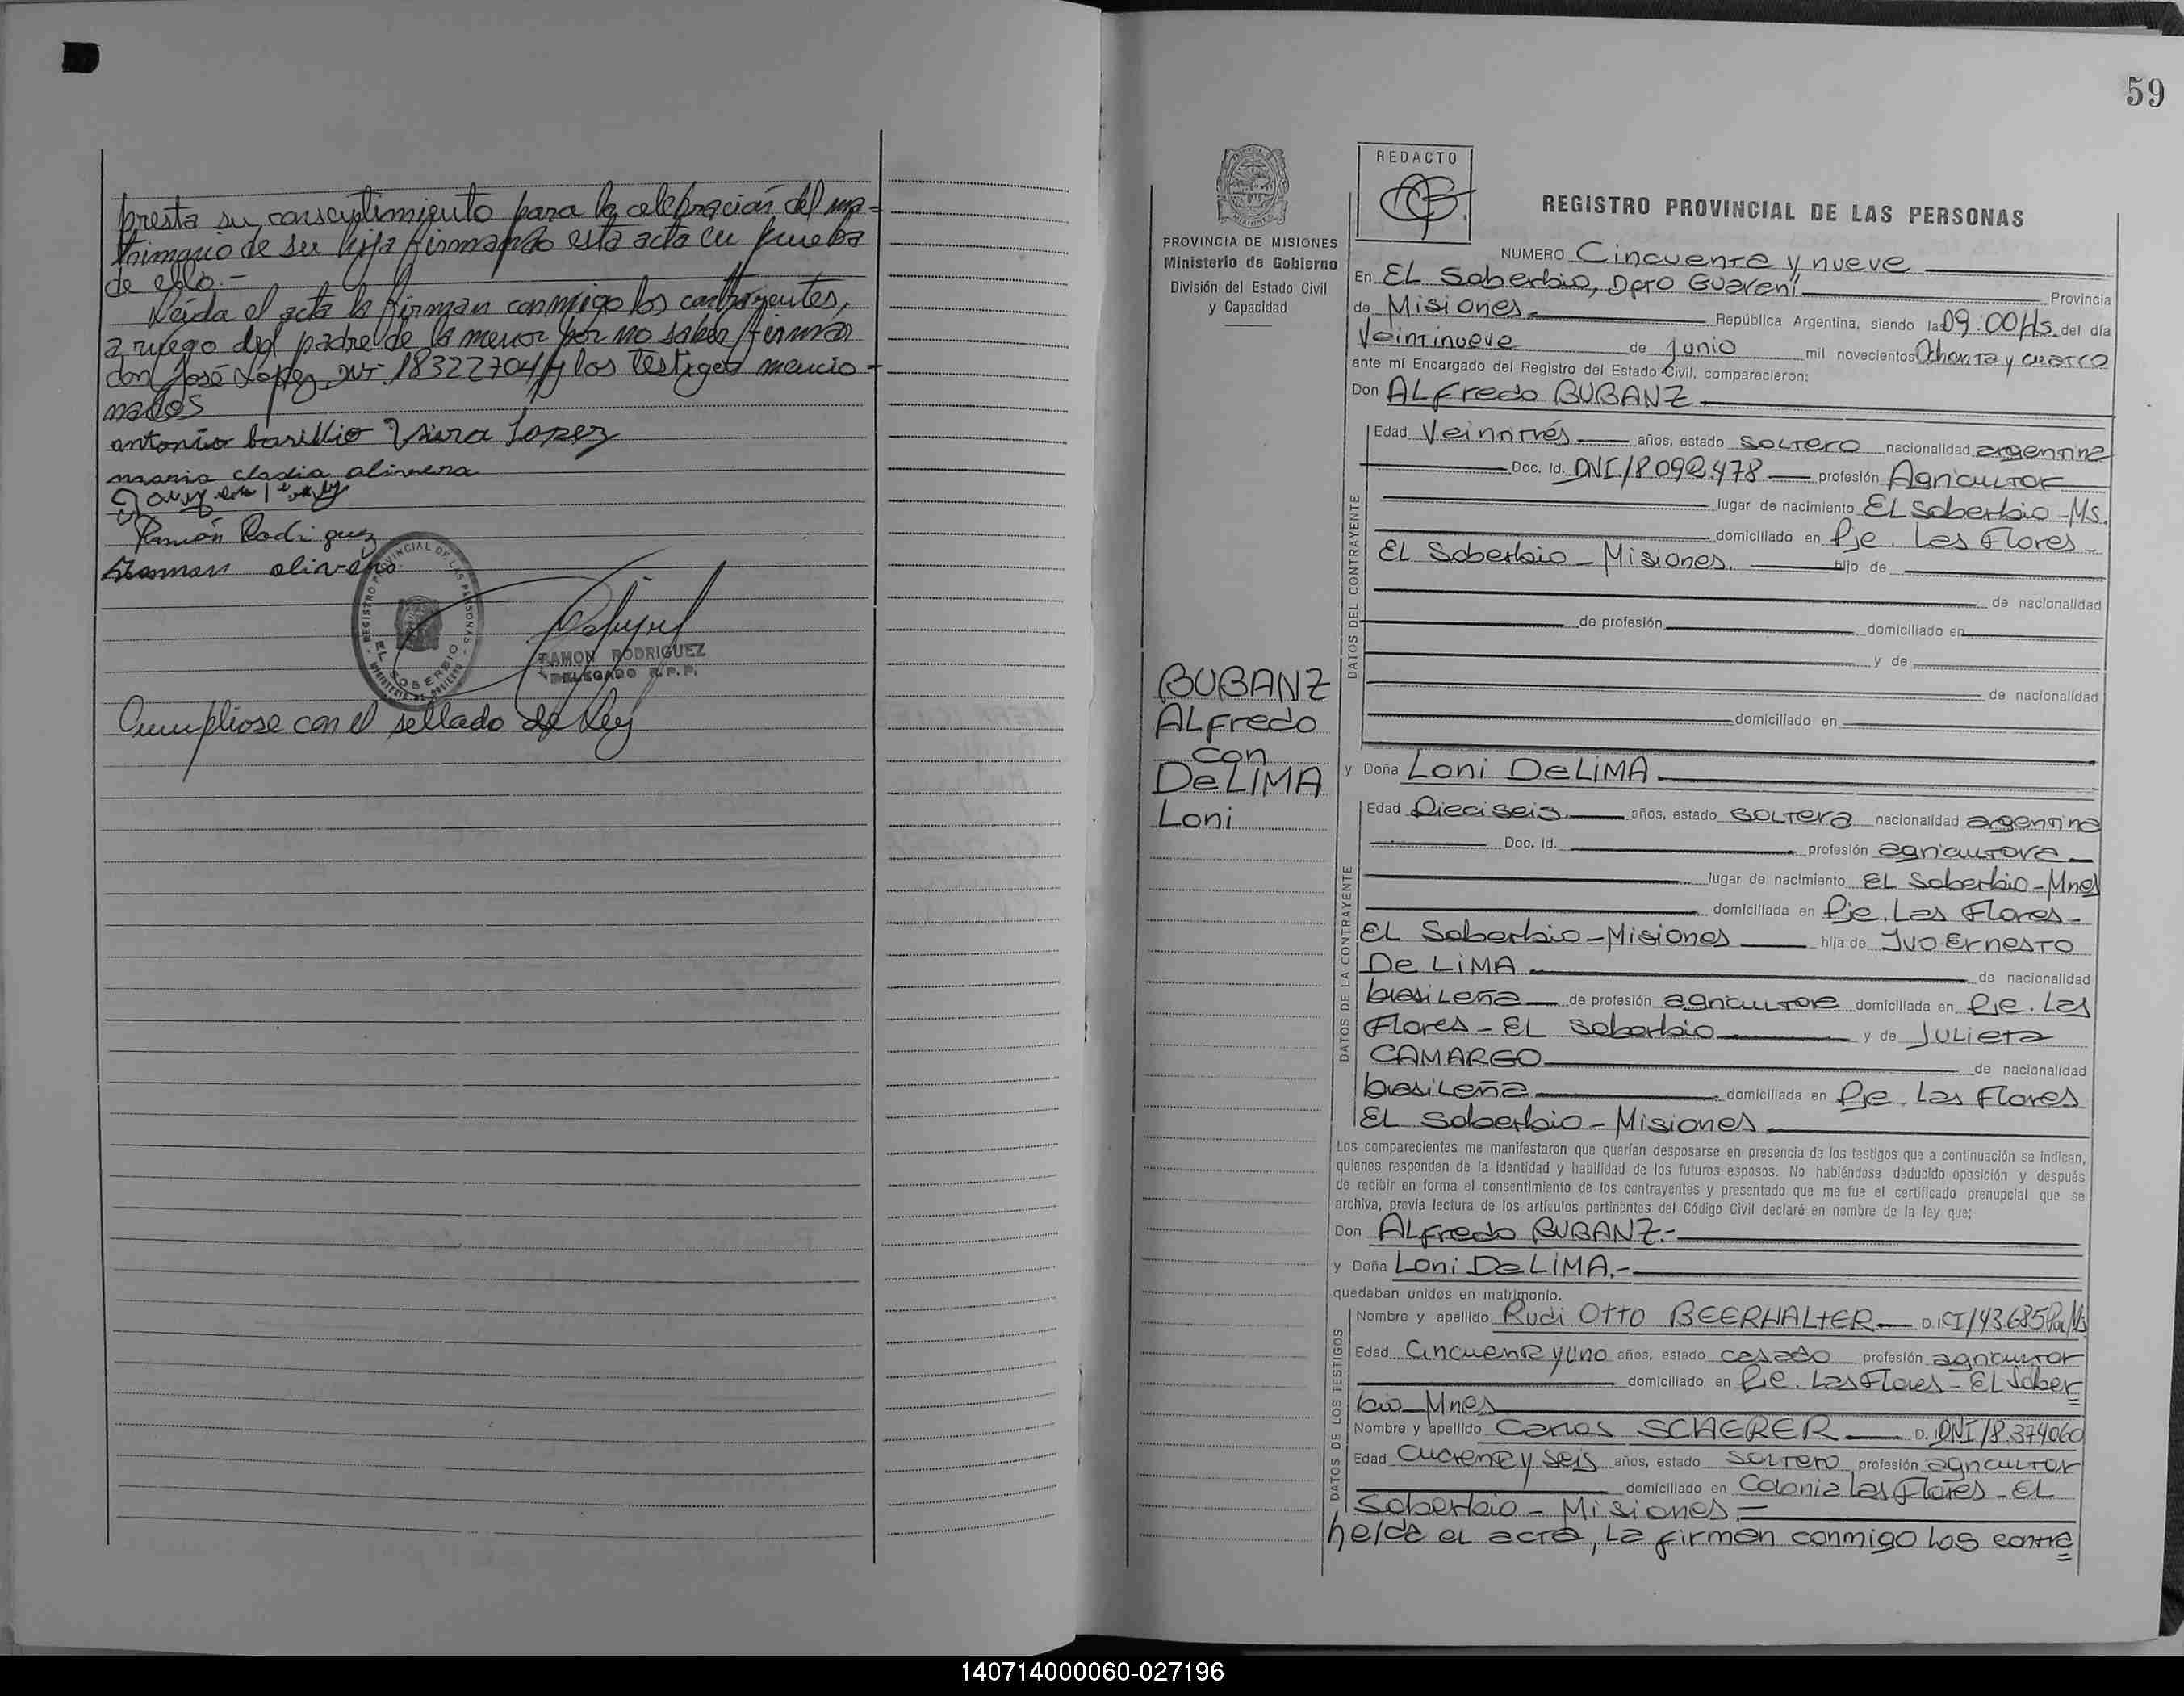 presta su consentimiento para la celebración del ma=
trimonio de su hija firmando esta acta en prueba
de ello.-
Leída el acta la firman conmigo los contrayentes,
a ruego del padre de la menor por no saber firmar
don José Lopez, DNI- 18322704 y los testigos mencio-
nados
antonio basillio Viera Lopez
maria cladia olivera
Ramón Rodriguez
Raman olivera
REGISTRO PROVINCIAL DE LAS PERSONAS
EL SOBERBIO
RAMON RODRIGUEZ
DELEGADO R.P.P.
Cumpliose con el sellado de Ley
59
PROVINCIA DE MISIONES
Ministerio de Gobierno
División del Estado Civil
y Capacidad
BUBANZ
ALFredo
con
DeLIMA
Loni
REDACTO
REGISTRO PROVINCIAL DE LAS PERSONAS
NUMERO Cincuenta y nueve
En EL Soberbio, Dpto Guaraní Provincia
de Misiones República Argentina, siendo las 09:00Hs. del día
Veintinueve de junio mil novecientos Ochenta y cuatro
ante mí Encargado del Registro del Estado Civil, comparecieron:
Don ALfredo BUBANZ
DATOS DEL CONTRAYENTE
Edad Veintitrés años, estado SOLTERO nacionalidad argentina
Doc. Id. DNI/8.092.478 profesión Agricultor
lugar de nacimiento EL Soberbio-Ms.
domiciliado en Pje. Las Flores-
EL Soberbio - Misiones. hijo de
de nacionalidad
de profesión domiciliado en
y de
de nacionalidad
domiciliado en
y Doña Loni DeLIMA.
DATOS DE LA CONTRAYENTE
Edad Dieciseis años, estado SOLTERA nacionalidad argentina
Doc. Id. profesión agricultora
lugar de nacimiento EL Soberbio-Mnes
domiciliada en Pje. Las Flores-
EL Soberbio-Misiones hija de IVO Ernesto
De LIMA de nacionalidad
brasileña de profesión agricultor domiciliada en Pje. Las
Flores - EL Soberbio y de Julieta
CAMARGO de nacionalidad
brasileña domiciliada en Pje. Las Flores
EL Soberbio - Misiones
Los comparecientes me manifestaron que querían desposarse en presencia de los testigos que a continuación se indican,
quienes responden de la identidad y habilidad de los futuros esposos. No habiéndose deducido oposición y después
de recibir en forma el consentimiento de los contrayentes y presentado que me fue el certificado prenupcial que se
archiva, previa lectura de los artículos pertinentes del Código Civil declaré en nombre de la ley que;
Don ALfredo BUBANZ.-
y Doña Loni DeLIMA.-
quedaban unidos en matrimonio.
DATOS DE LOS TESTIGOS
Nombre y apellido Rudi Otto BEERHALTER D. CI/143.685
Edad Cincuenta y uno años, estado casado profesión agricultor
domiciliado en Pje. Las Flores - EL Sober=
bio Mnes
Nombre y apellido Carlos SCHERER D. DNI/8.374060
Edad Cuarenta y seis años, estado soltero profesión agricultor
domiciliado en Colonia Las Flores - EL
Soberbio - Misiones
heida el acta, la firman conmigo los contra=
140714000060-027196